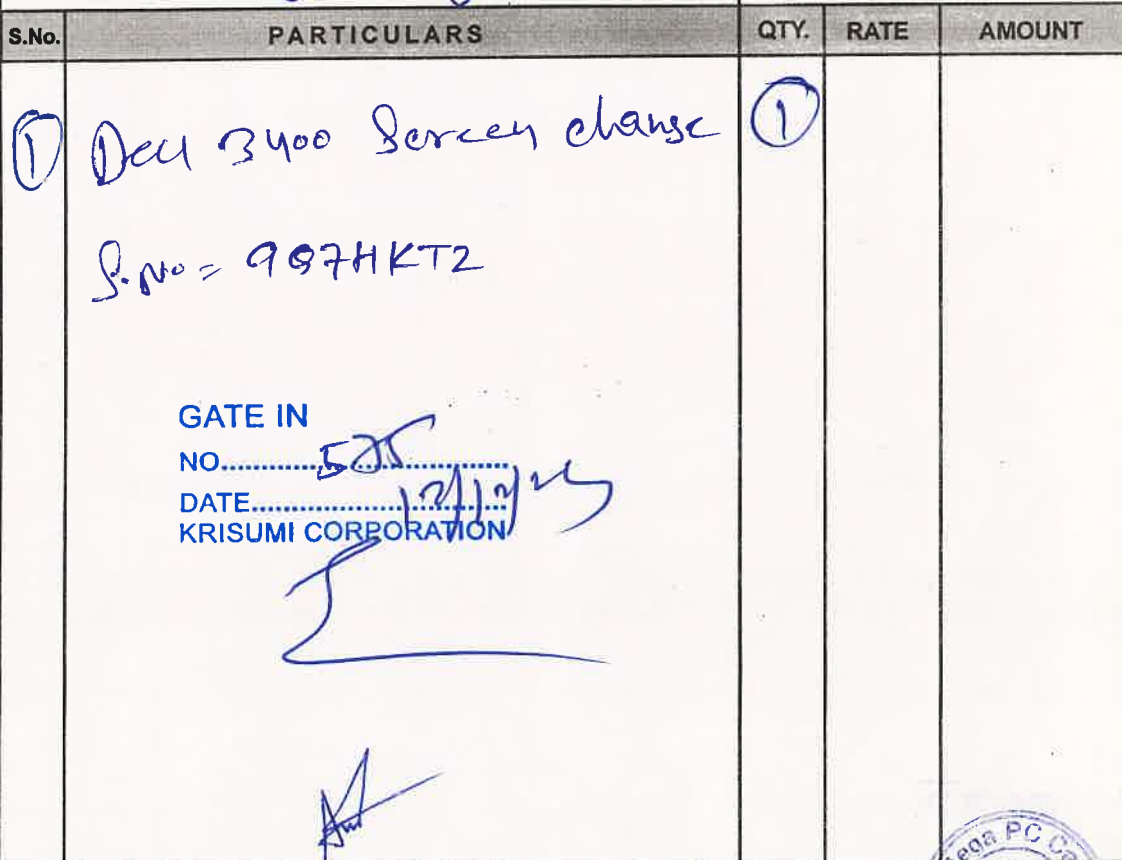 S.No. PARTICULARS QTY. RATE AMOUNT
1 Dell 3400 Screen change 1
S.No = 9G7HKT2
GATE IN
NO.............575..................
DATE..................12/12/25
KRISUMI CORPORATION
ega PC Ca